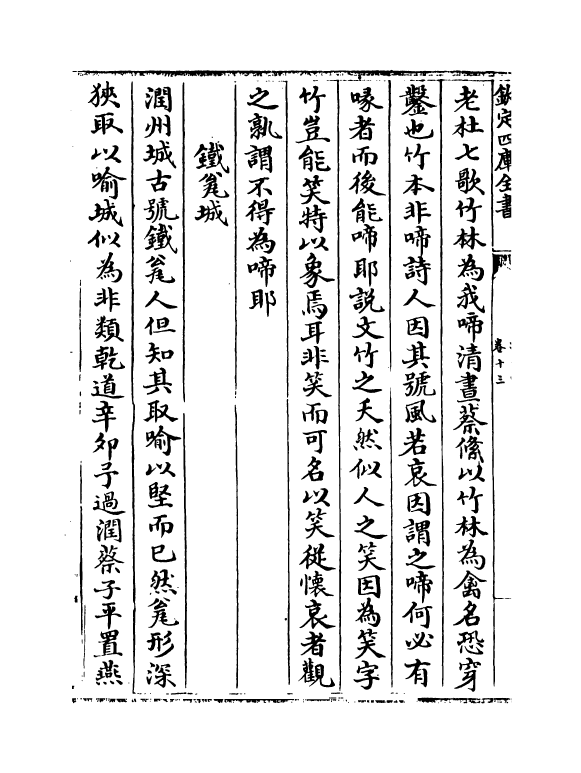 欽定四庫全書
卷十三
老杜七歌竹林為我啼清晝蔡絛以竹林為禽名恐穿
鑿也竹本非啼詩人因其號風若哀因謂之啼何必有
喙者而後能啼耶説文竹之夭然似人之笑因為笑字
竹豈能笑特以象焉耳非笑而可名以笑從懷哀者觀
之孰謂不得為啼耶
鐵瓮城
潤州城古號鐵瓮人但知其取喻以堅而已然瓮形深
狹取以喻城似為非類乾道辛卯予過潤蔡子平置燕